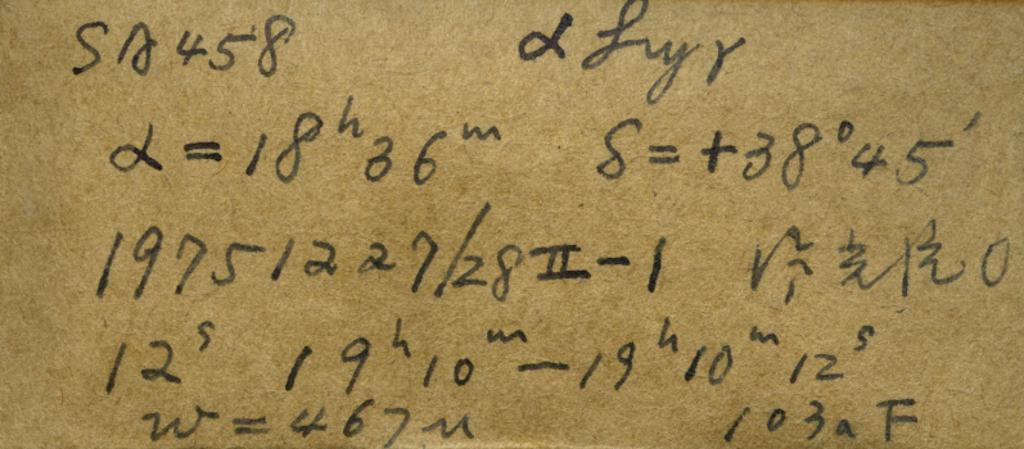 SA458 α Lyr
α = 18ʰ36ᵐ δ = +38°45′
1975 12 27/28 II-1
12ˢ 19ʰ10ᵐ-19ʰ10ᵐ12ˢ
w = 467μ 103aF